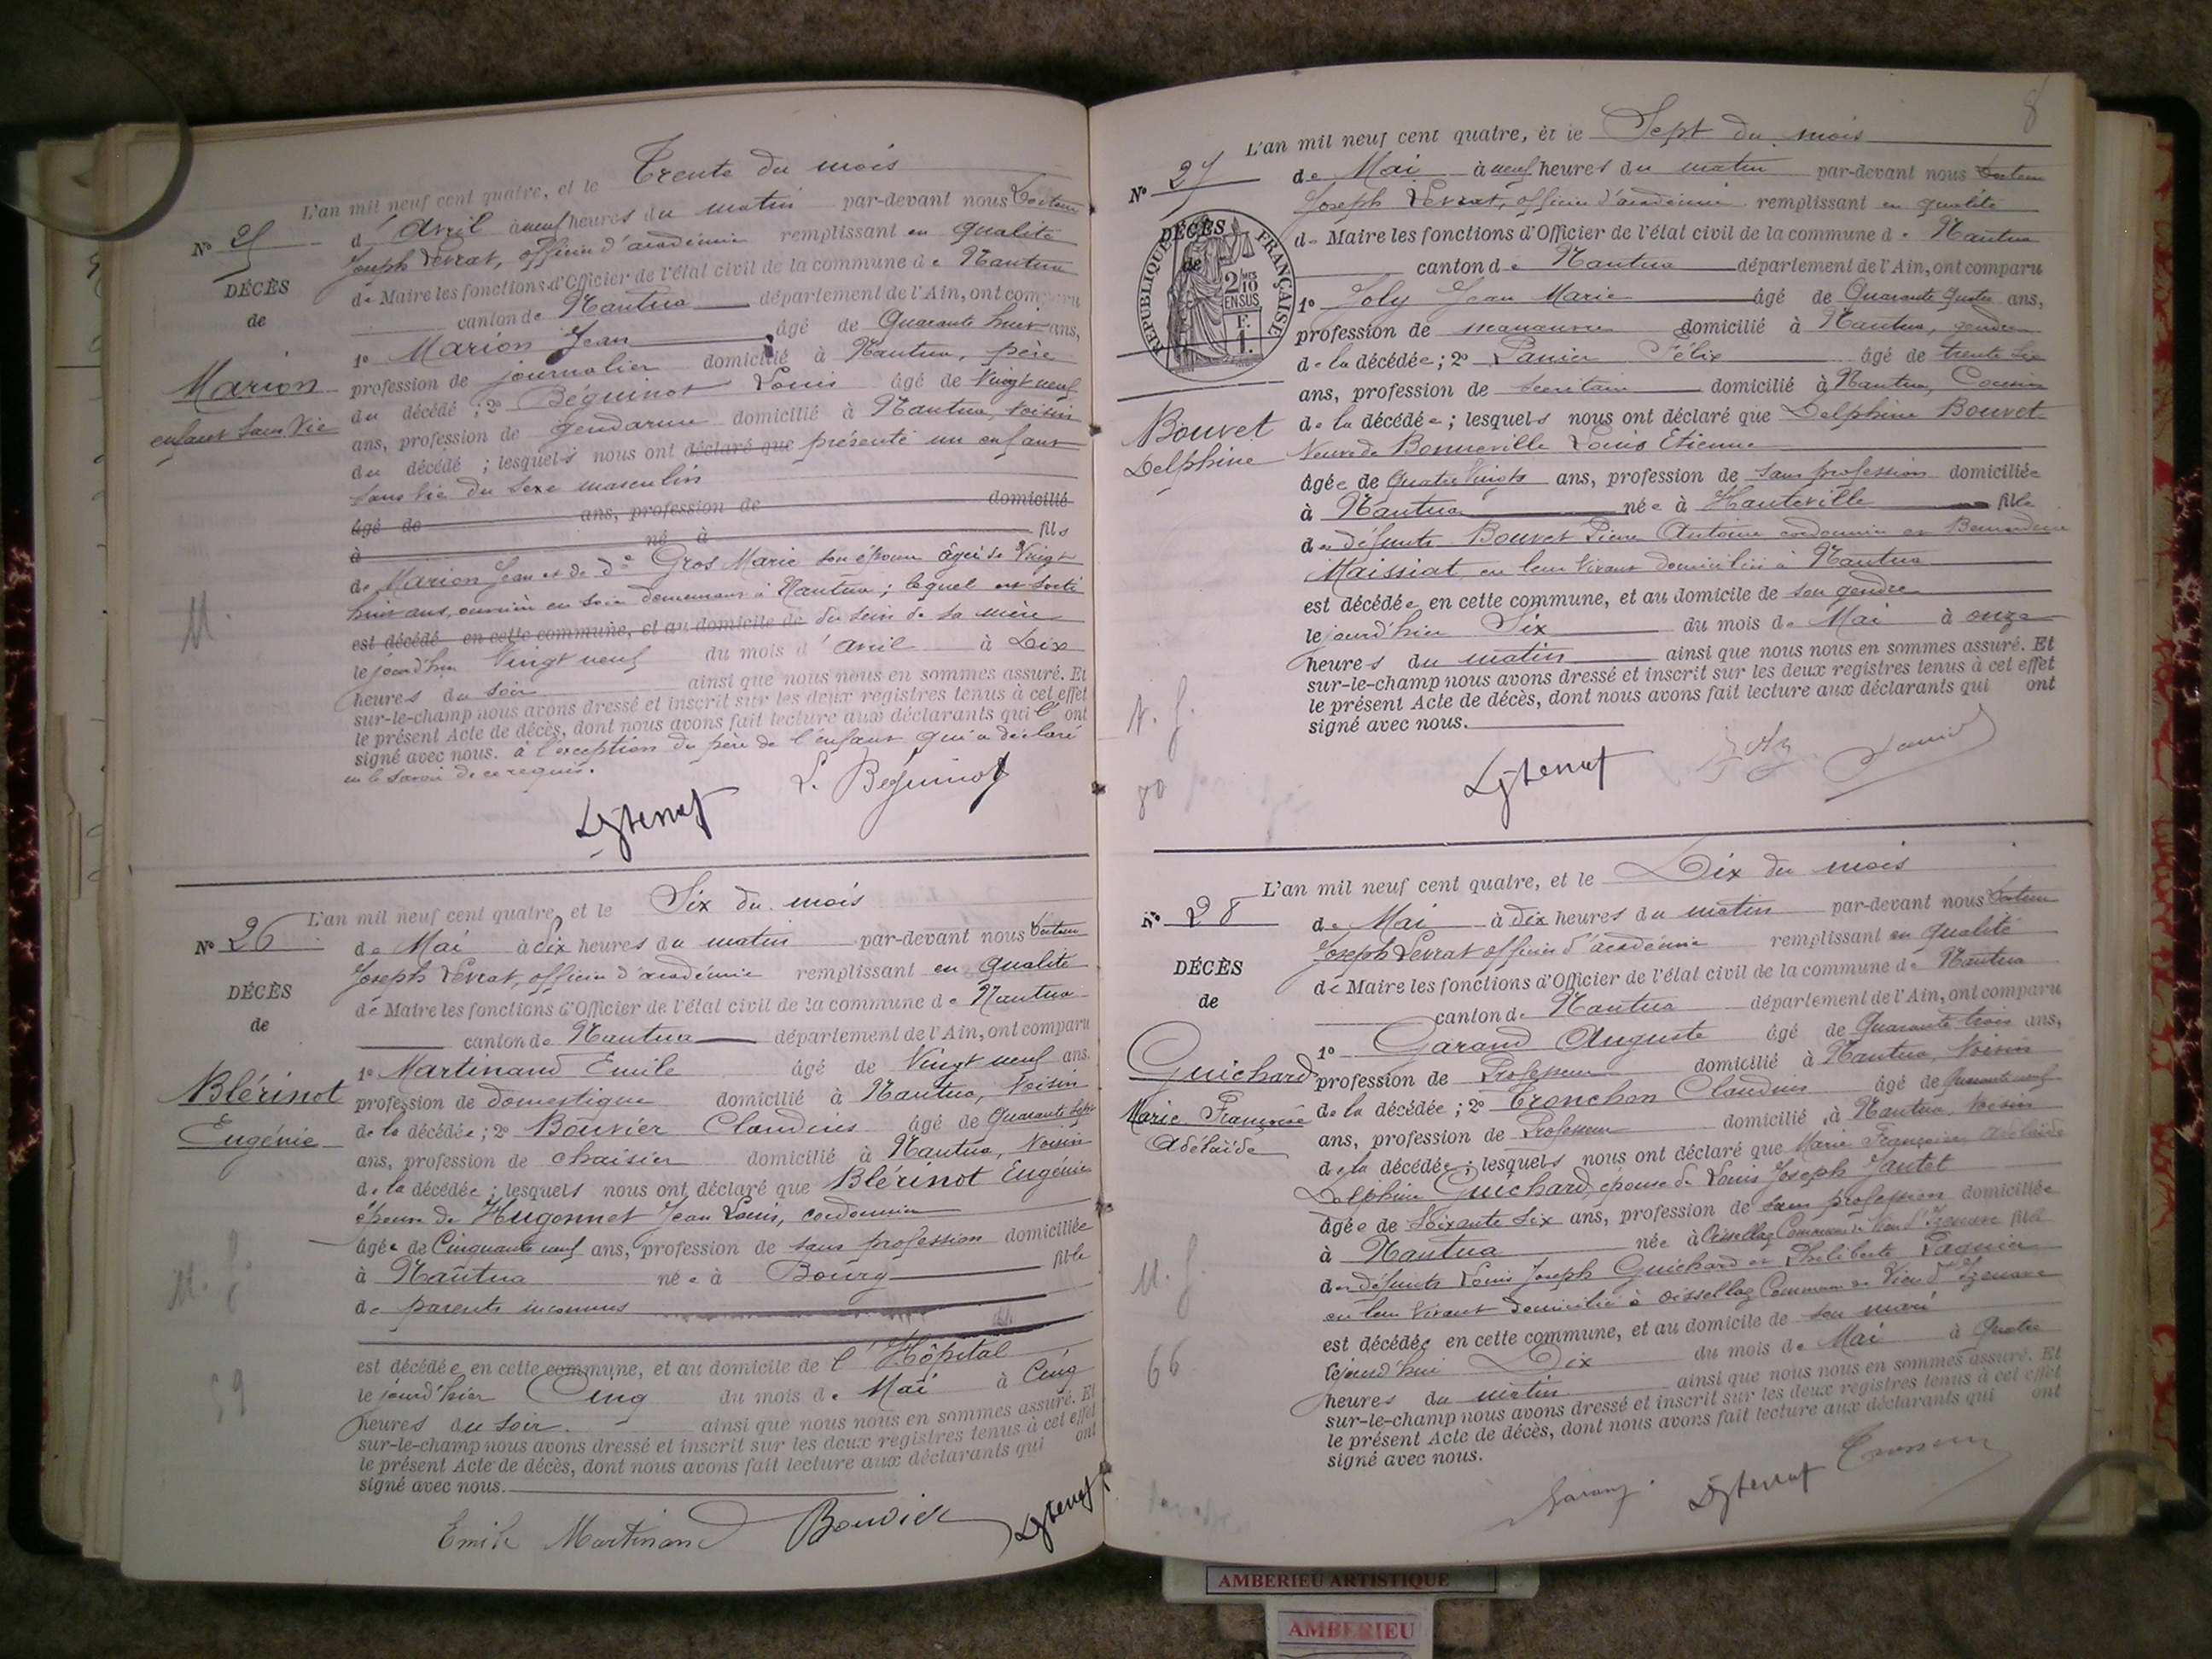 L'an mil neuf cent quatre, et le Trente du mois
N° 25
d'Avril à neuf heures du matin par-devant nous Docteur
Joseph Levrat, officier d'académie remplissant en qualité
de Maire les fonctions d'Officier de l'état civil de la commune de Nantua
canton de Nantua département de l'Ain, ont comparu
DÉCÈS
de
Marion
enfant sans vie
1° Marion Jean âgé de Quarante huit ans,
profession de journalier domicilié à Nantua, père
du décédé ; 2° Béguinot Louis âgé de Vingt neuf
ans, profession de gendarme domicilié à Nantua, voisin
du décédé ; lesquels nous ont déclaré que présenté un enfant
sans vie du sexe masculin
âgé de ans, profession de domicilié
à né à fils
de Marion Jean et de de Gros Marie son épouse âgée de Vingt
huit ans, ouvrière en soie demeurant à Nantua ; lequel est sorti
est décédé en cette commune, et au domicile de du sein de sa mère
le jourd'hier Vingt neuf du mois d'avril à Dix
heures du soir ainsi que nous nous en sommes assuré. Et
sur-le-champ nous avons dressé et inscrit sur les deux registres tenus à cet effet
le présent Acte de décès, dont nous avons fait lecture aux déclarants qui l'ont
signé avec nous. à l'exception du père de l'enfant qui a déclaré
ne le savoir de ce requis.
M.
L. Béguinot
L'an mil neuf cent quatre, et le Six du mois
N° 26
de Mai à Dix heures du matin par-devant nous Docteur
Joseph Levrat, officier d'académie remplissant en qualité
de Maire les fonctions d'Officier de l'état civil de la commune de Nantua
canton de Nantua département de l'Ain, ont comparu
DÉCÈS
de
Blérinot
Eugénie
1° Martinand Emile âgé de Vingt neuf ans,
profession de domestique domicilié à Nantua, voisin
de la décédée ; 2° Bouvier Claudius âgé de Quarante sept
ans, profession de chaisier domicilié à Nantua, voisin
de la décédée ; lesquels nous ont déclaré que Blérinot Eugénie
épouse de Hugonnet Jean Louis, cordonnier
âgée de Cinquante neuf ans, profession de sans profession domiciliée
à Nantua née à Bourg fille
de parents inconnus
est décédée en cette commune, et au domicile de l'Hôpital
le jourd'hier Cinq du mois de Mai à Cinq
heures du soir. ainsi que nous nous en sommes assuré. Et
sur-le-champ nous avons dressé et inscrit sur les deux registres tenus à cet effet
le présent Acte de décès, dont nous avons fait lecture aux déclarants qui ont
signé avec nous.
59
Emile Martinand Bouvier
8
L'an mil neuf cent quatre, et le Sept du mois
N° 27
de Mai à neuf heures du matin par-devant nous Docteur
Joseph Levrat, officier d'académie remplissant en qualité
de Maire les fonctions d'Officier de l'état civil de la commune de Nantua
canton de Nantua département de l'Ain, ont comparu
DÉCÈS
de
RÉPUBLIQUE FRANÇAISE
2/10 MES
EN SUS
F.
1.
Bouvet
Delphine
1° Joly Jean Marie âgé de Quarante quatre ans,
profession de manœuvre domicilié à Nantua, gendre
de la décédée ; 2° Panier Félix âgé de trente six
ans, profession de secrétaire domicilié à Nantua, Cousin
de la décédée ; lesquels nous ont déclaré que Delphine Bouvet
Veuve de Bonneville Louis Etienne
âgée de Quatre Vingts ans, profession de sans profession domiciliée
à Nantua née à Hauteville fille
de défunts Bouvet Pierre Antoine cordonnier et
Maissiat en leur vivant domiciliés à Nantua
est décédée en cette commune, et au domicile de son gendre
le jourd'hier Six du mois de Mai à onze
heures du matin ainsi que nous nous en sommes assuré. Et
sur-le-champ nous avons dressé et inscrit sur les deux registres tenus à cet effet
le présent Acte de décès, dont nous avons fait lecture aux déclarants qui ont
signé avec nous.
80
Joly Panier
L'an mil neuf cent quatre, et le Dix du mois
N° 28
de Mai à dix heures du matin par-devant nous Docteur
Joseph Levrat officier d'académie remplissant en qualité
de Maire les fonctions d'Officier de l'état civil de la commune de Nantua
canton de Nantua département de l'Ain, ont comparu
DÉCÈS
de
Guichard
Marie Françoise
Adelaïde
1° Garand Auguste âgé de Quarante trois ans,
profession de Professeur domicilié à Nantua, voisin
de la décédée ; 2° Tronchon Claudius âgé de Quarante neuf
ans, profession de Professeur domicilié à Nantua, voisin
de la décédée ; lesquels nous ont déclaré que Marie Françoise Adelaïde
Delphine Guichard, épouse de Louis Joseph Jantet
âgée de Soixante six ans, profession de sans profession domiciliée
à Nantua née à Oissellaz Commune de Vieu d'Izenave fille
de défunts Louis Joseph Guichard et Philiberte Pagnier
en leur vivant domiciliés à Oissellaz Commune de Vieu d'Izenave
est décédée en cette commune, et au domicile de son mari
le jourd'hui Dix du mois de Mai à Quatre
heures du matin ainsi que nous nous en sommes assuré. Et
sur-le-champ nous avons dressé et inscrit sur les deux registres tenus à cet effet
le présent Acte de décès, dont nous avons fait lecture aux déclarants qui ont
signé avec nous.
66
Garand
AMBERIEU ARTISTIQUE
AMBERIEU